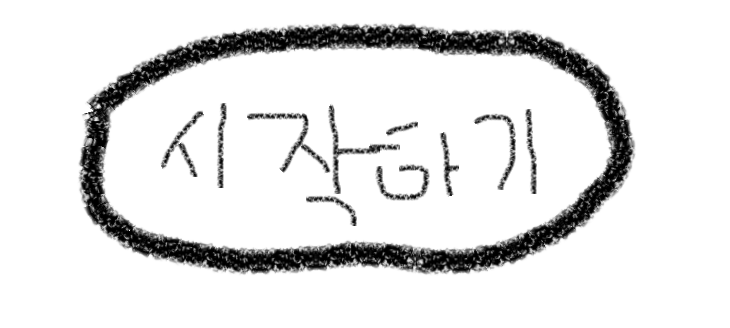 시작하기